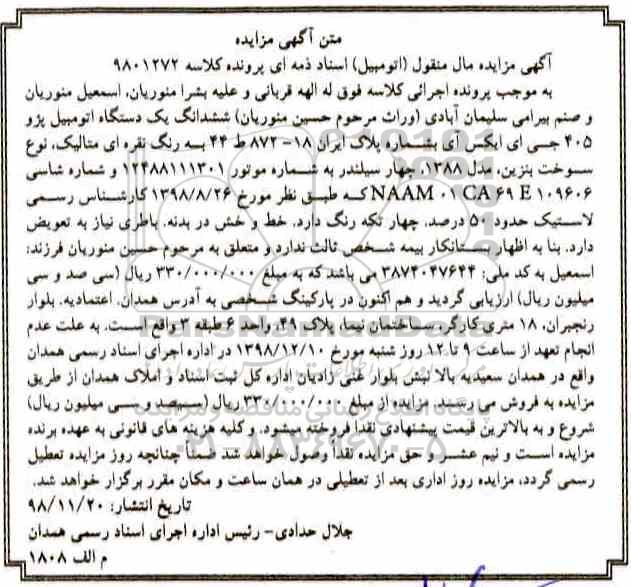 متن آگهی مزایده
آگهی مزایده مال منقول (اتومبیل) اسناد ذمه ای پرونده کلاسه ۹۸۰۱۲۷۲
به موجب پرونده اجرائی کلاسه فوق له الهه قربانی و علیه بشرا منوریان، اسمعیل منوریان
و صنم بیرامی سلیمان آبادی (وراث مرحوم حسین منوریان) ششدانگ یک دستگاه اتومبیل پژو
۴۰۵ جی ای ایکس آی بشماره پلاک ایران ۱۸- ۸۷۲ ط ۴۴ به رنگ نقره ای متالیک، نوع
سوخت بنزین، مدل ۱۳۸۸، چهار سیلندر به شماره موتور ۱۲۴۸۸۱۱۱۳۰۱ و شماره شاسی
NAAM ۰۱ CA ۶۹ E ۱۰۹۶۰۶ که طبق نظر مورخ ۱۳۹۸/۸/۲۶ کارشناس رسمی
لاستیک حدود ۵۰ درصد، چهار تکه رنگ دارد. خط و خش در بدنه، باطری نیاز به تعویض
دارد. بنا به اظهار بستانکار بیمه شخص ثالث ندارد و متعلق به مرحوم حسین منوریان فرزند:
اسمعیل به کد ملی: ۳۸۷۴۰۴۷۶۴۴ می باشد که به مبلغ ۳۳۰/۰۰۰/۰۰۰ ریال (سی صد و سی
میلیون ریال) ارزیابی گردید و هم اکنون در پارکینگ شخصی به آدرس همدان، اعتمادیه، بلوار
رنجبران، ۱۸ متری کارگر، ساختمان نیما، پلاک ۴۹، واحد ۶ طبقه ۳ واقع است. به علت عدم
انجام تعهد از ساعت ۹ تا ۱۲ روز شنبه مورخ ۱۳۹۸/۱۲/۱۰ در اداره اجرای اسناد رسمی همدان
واقع در همدان سعیدیه بالا نبش بلوار غنی زادیان اداره کل ثبت اسناد و املاک همدان از طریق
مزایده به فروش می رسد. مزایده از مبلغ ۳۳۰/۰۰۰/۰۰۰ ریال (سیصد و سی میلیون ریال)
شروع و به بالاترین قیمت پیشنهادی نقدا فروخته میشود. و کلیه هزینه های قانونی به عهده برنده
مزایده است و نیم عشر و حق مزایده نقدا وصول خواهد شد ضمناً چنانچه روز مزایده تعطیل
رسمی گردد، مزایده روز اداری بعد از تعطیلی در همان ساعت و مکان مقرر برگزار خواهد شد.
تاریخ انتشار: ۹۸/۱۱/۲۰
جلال حدادی- رئیس اداره اجرای اسناد رسمی همدان
م الف ۱۸۰۸
ParsNamadData
پایگاه اطلاع رسانی مناقصه و مزایده
۰۲۱-۸۸۳۴۹۶۷۰-۵